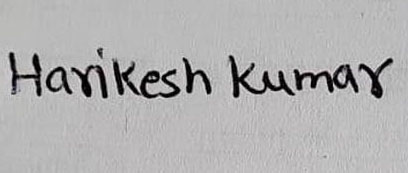 Harikesh Kumar